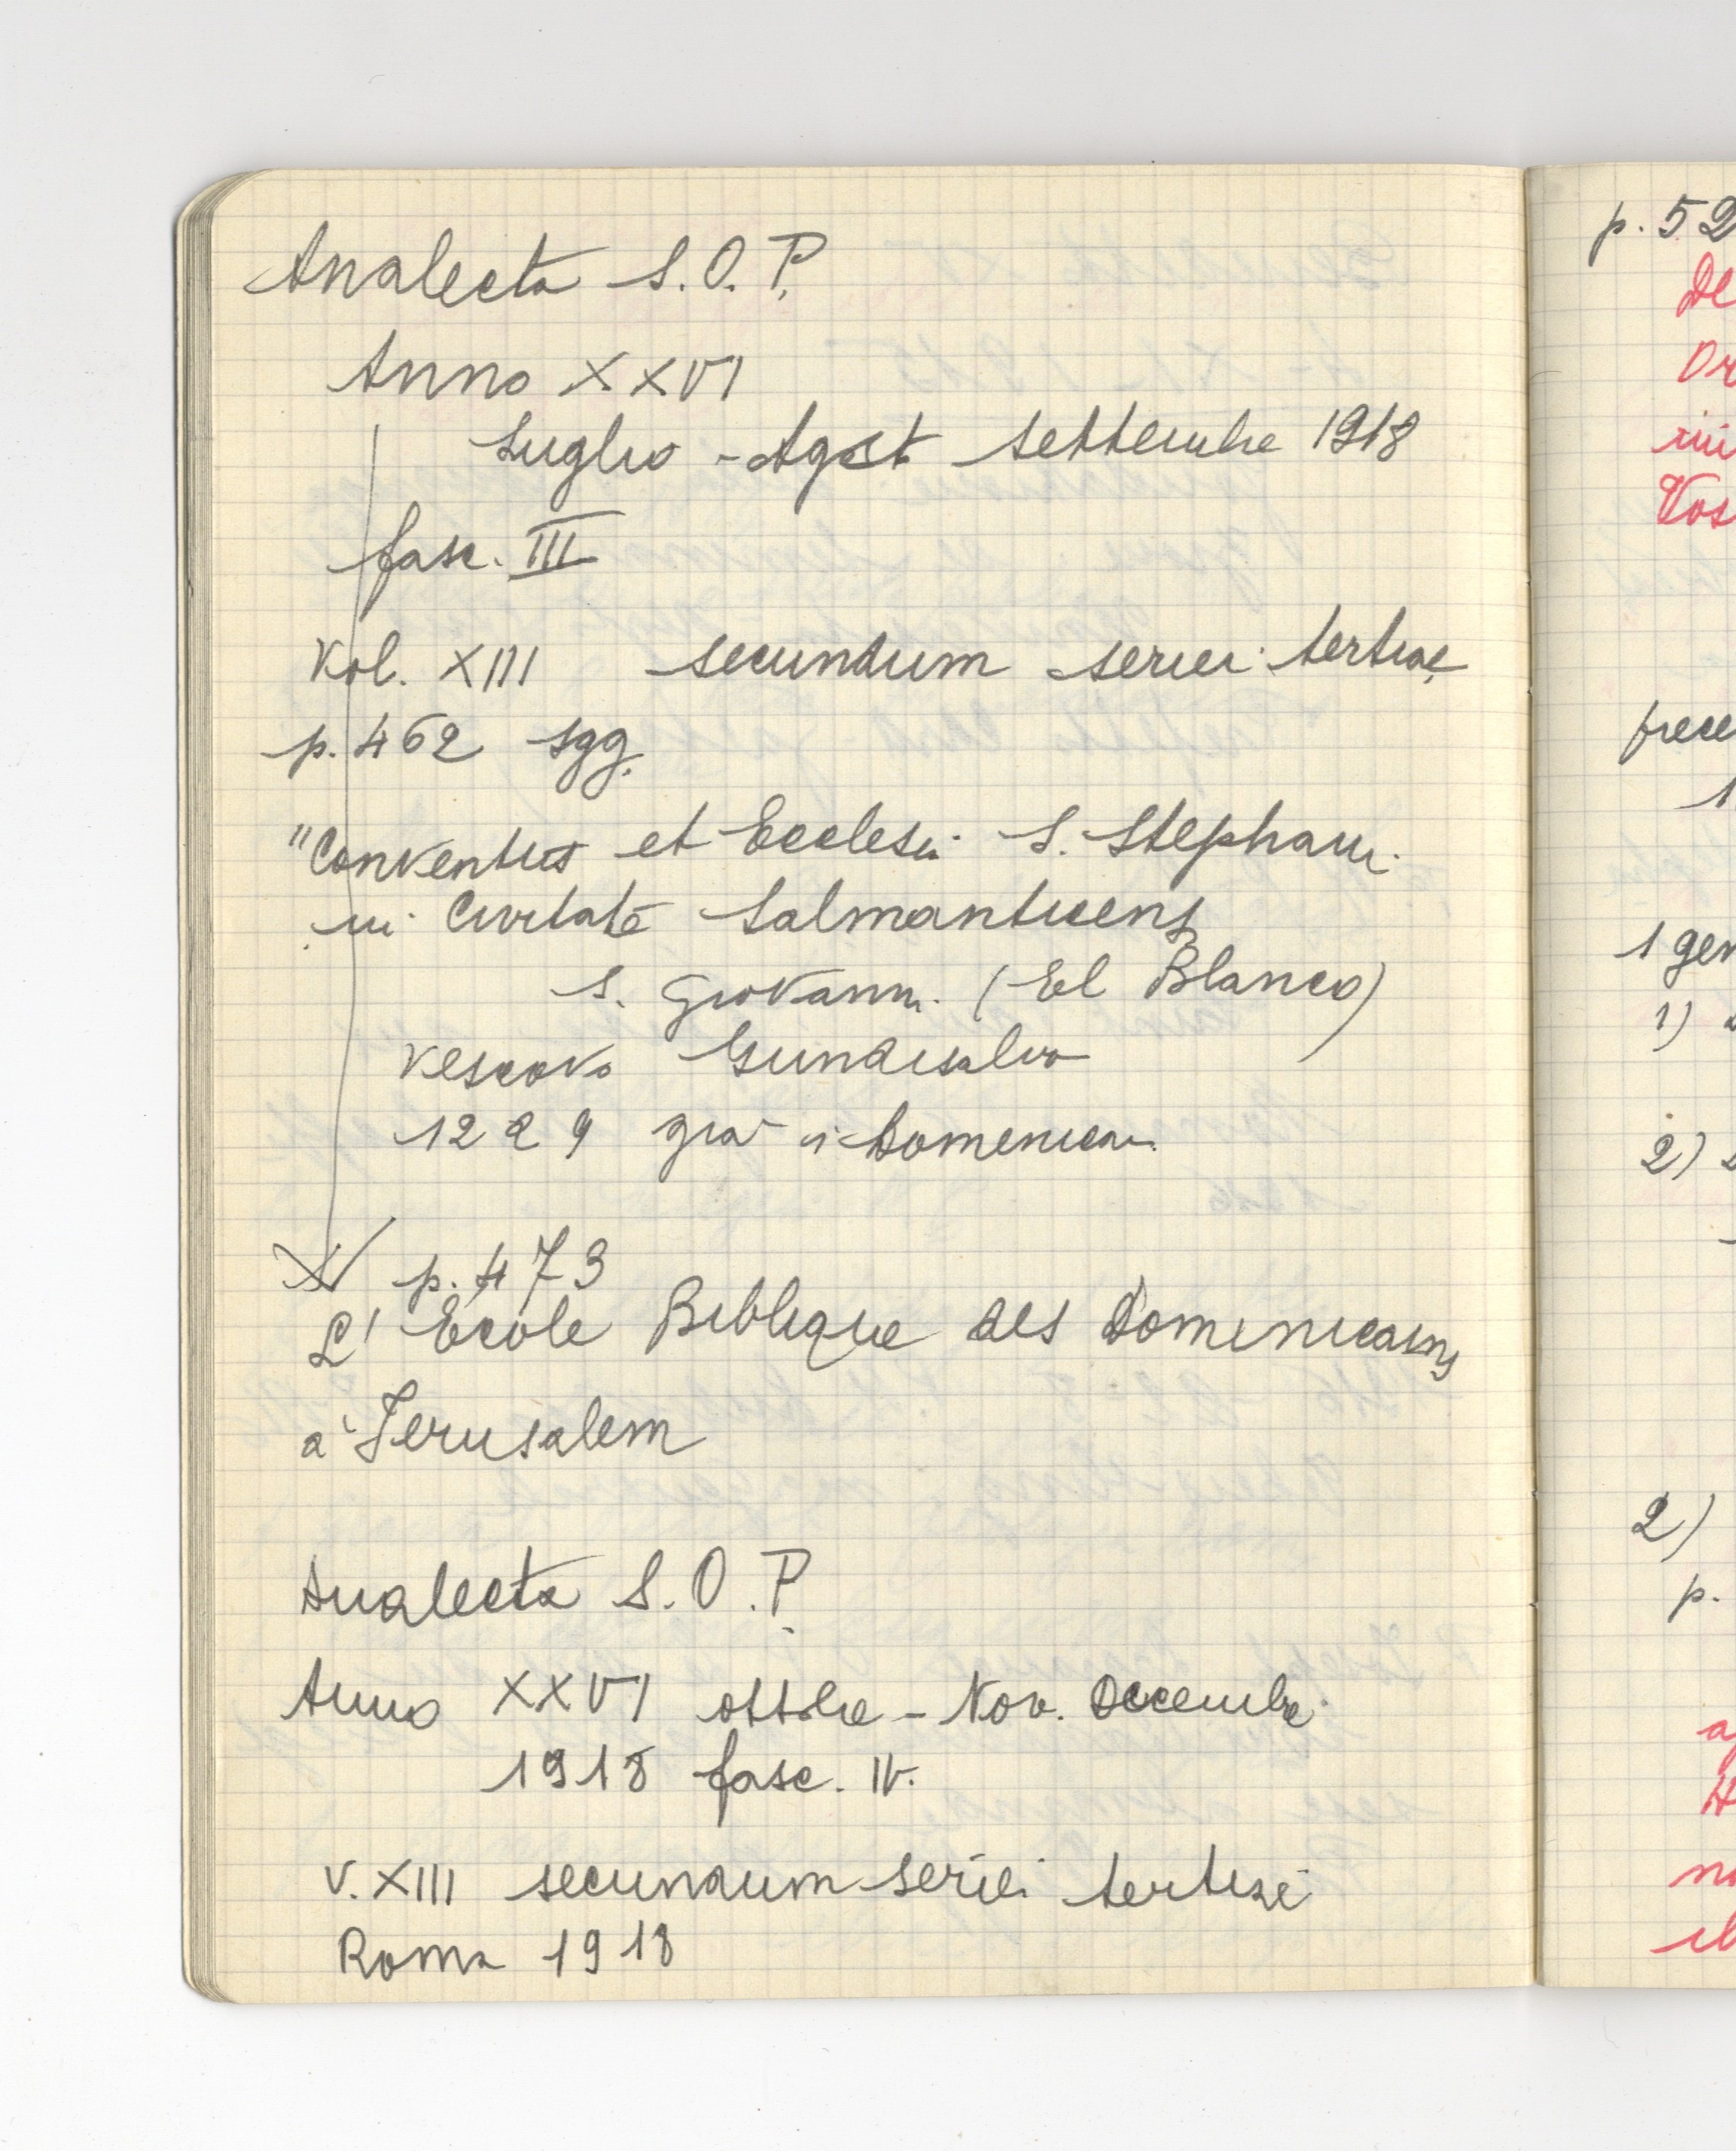 Analecta S.O.P.
Anno XXVI
Luglio - Agost settembre 1918
fasc. III
Vol. XIII secundum seriei tertiae
p. 462 sgg.
"Conventus et Ecclesia S. Stephani
in Civitate Salmanticens
S. Giovanni (El Blanco)
vescovo Gundisalvo
1229 già i Domenicani
p. 473
L'Ecole Biblique des Dominicains
a Jerusalem
Analecta S.O.P.
Anno XXVI ottobre - Nov. Decembre
1918 fasc. IV.
V. XIII secundum seriei tertiae
Roma 1918
p. 52
De
Or
Vos
1
1 gen
1)
2)
2)
p.